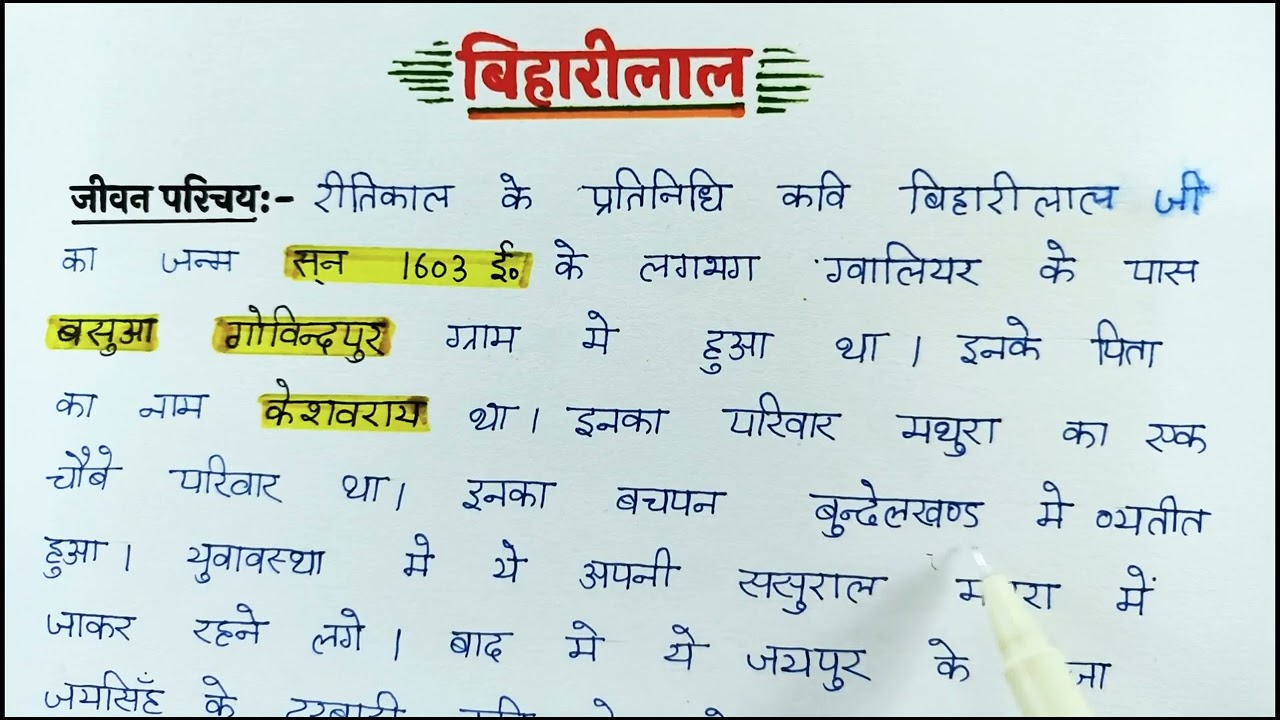 बिहारीलाल
जीवन परिचय:- रीतिकाल के प्रतिनिधि कवि बिहारीलाल जी
का जन्म सन् 1603 ई० के लगभग ग्वालियर के पास
बसुआ गोविन्दपुर ग्राम मे हुआ था। इनके पिता
का नाम केशवराय था। इनका परिवार मथुरा का एक
चौबे परिवार था। इनका बचपन बुन्देलखण्ड मे व्यतीत
हुआ। युवावस्था मे ये अपनी ससुराल में
जाकर रहने लगे। बाद मे ये जयपुर के
जयसिहँ के